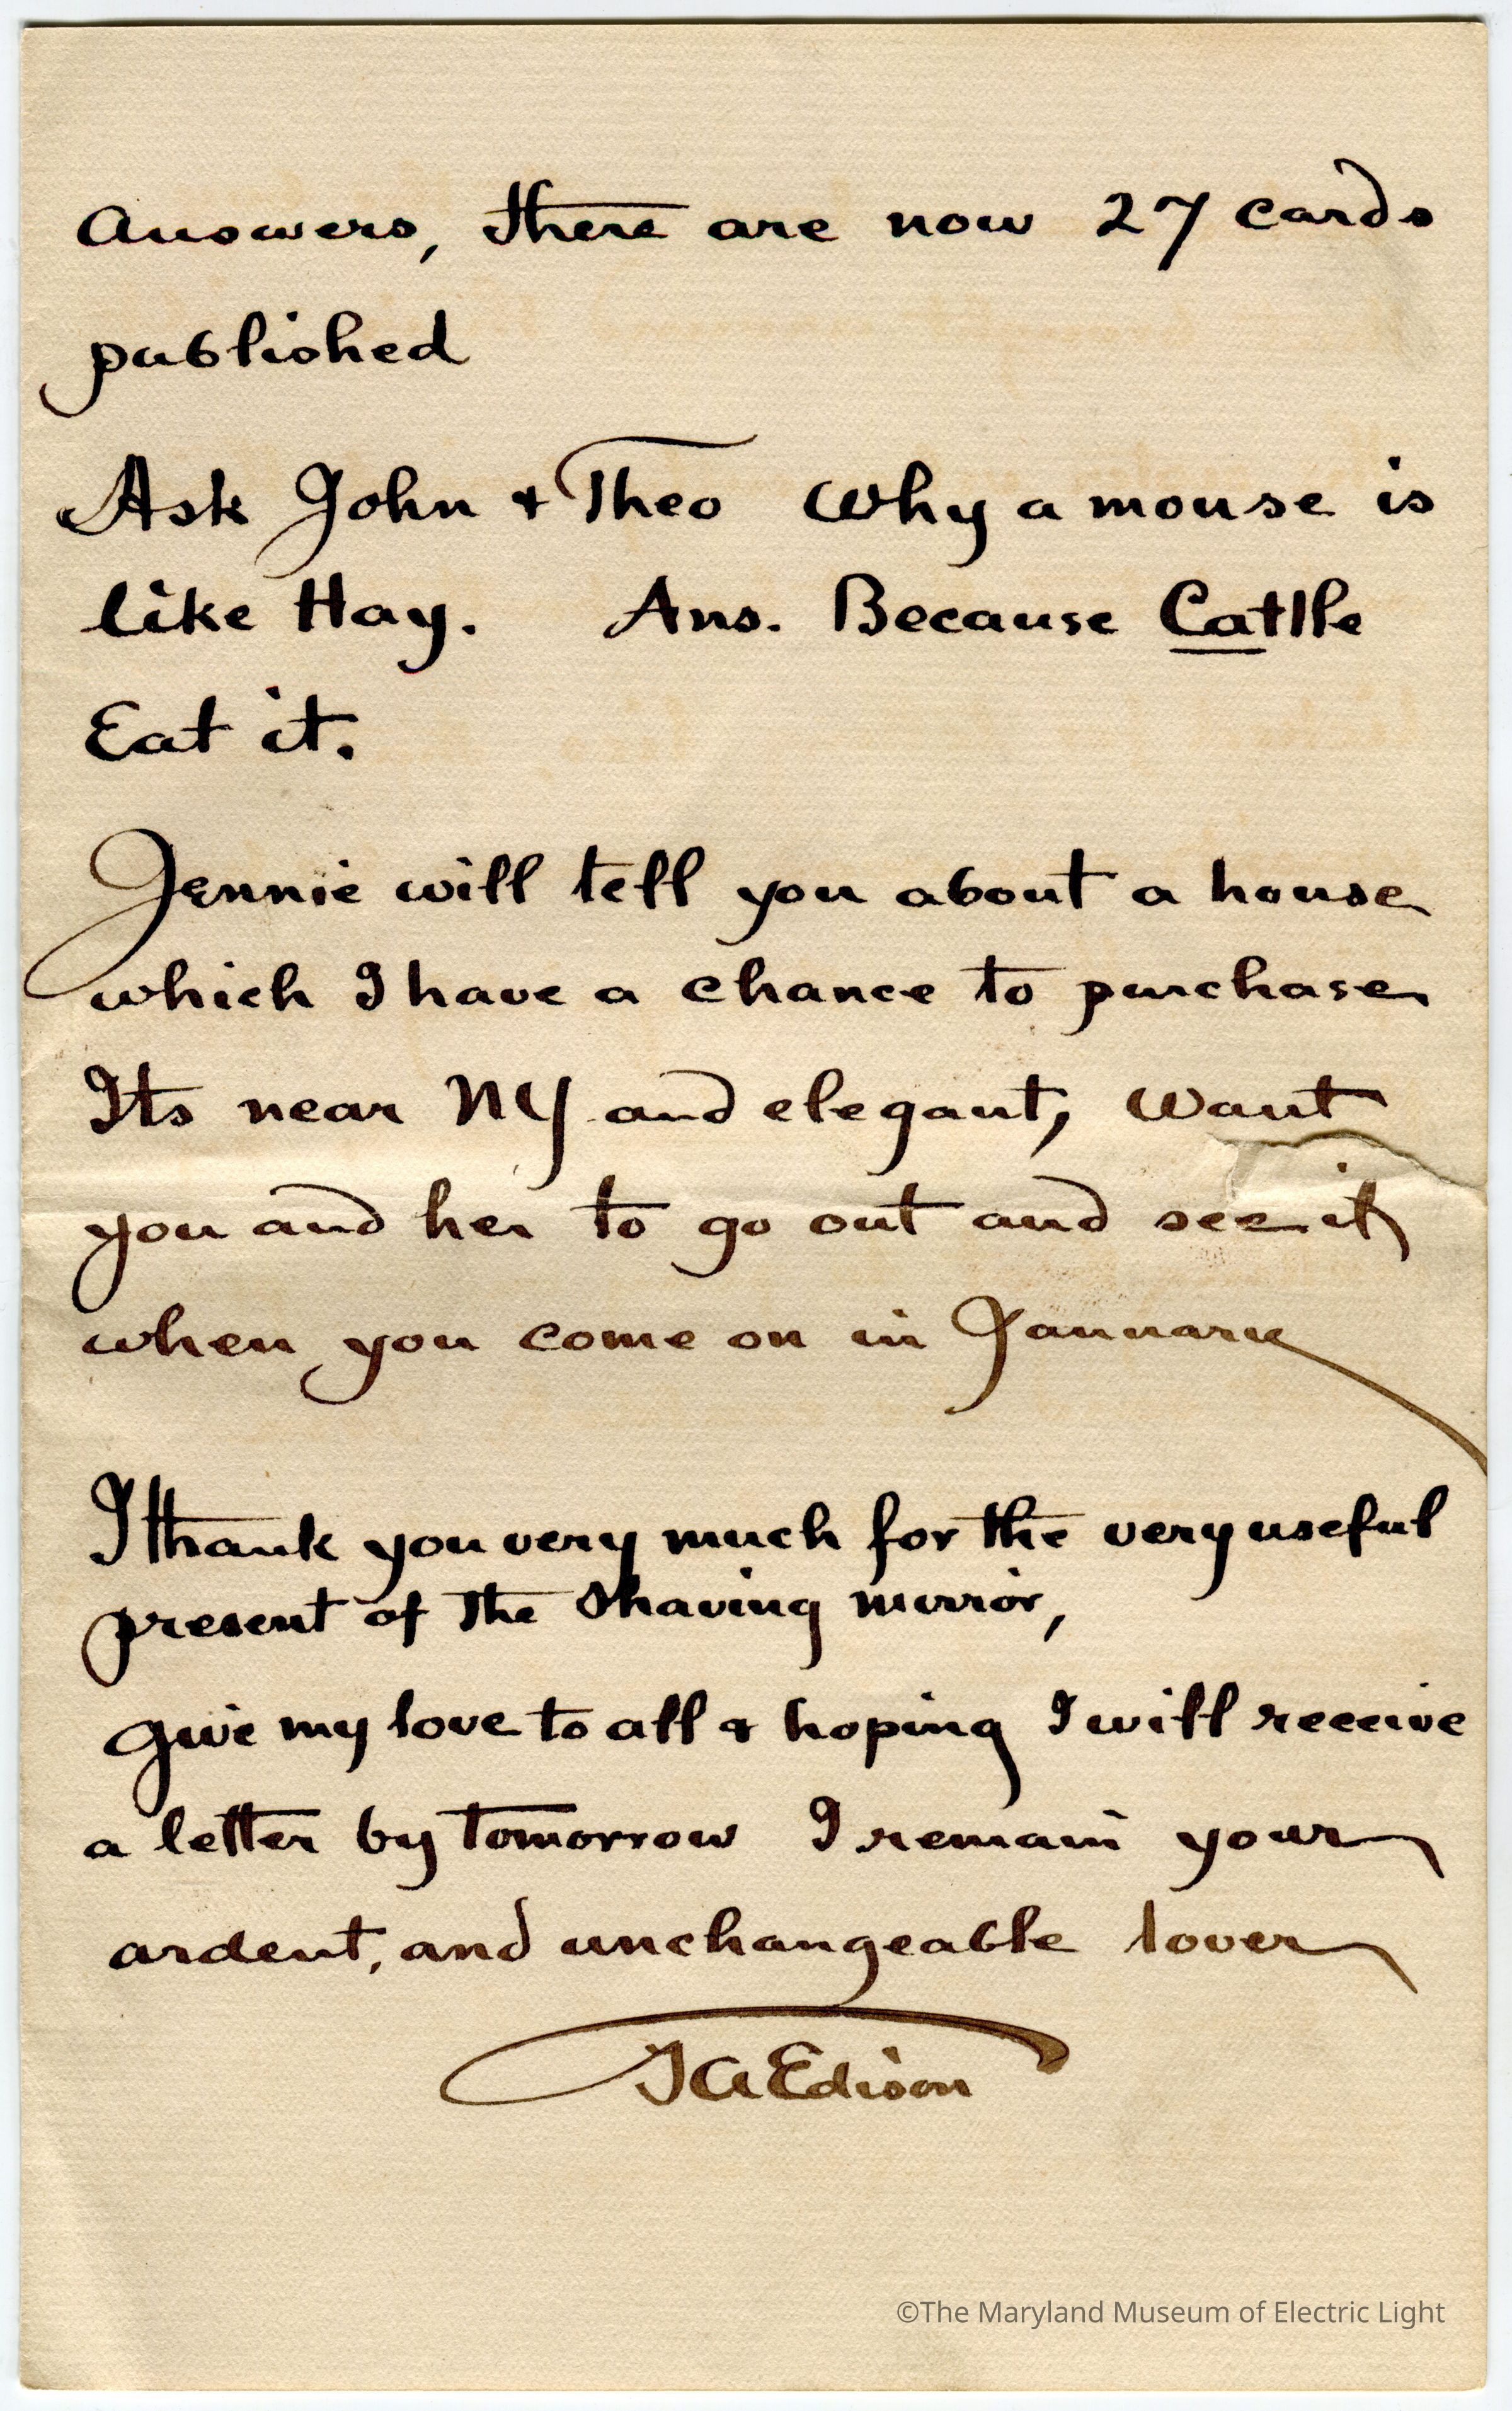 Answers, there are now 27 cards
published
Ask John & Theo Why a mouse is
like Hay. Ans. Because Cattle
Eat it.
Jennie will tell you about a house
which I have a chance to purchase
Its near NY and elegant, want
you and her to go out and see it
when you come on in January
I thank you very much for the very useful
present of the Shaving mirrior,
Give my love to all & hoping I will receive
a letter by tomorrow I remain your
ardent, and unchangeable lover
TAEdison
©The Maryland Museum of Electric Light